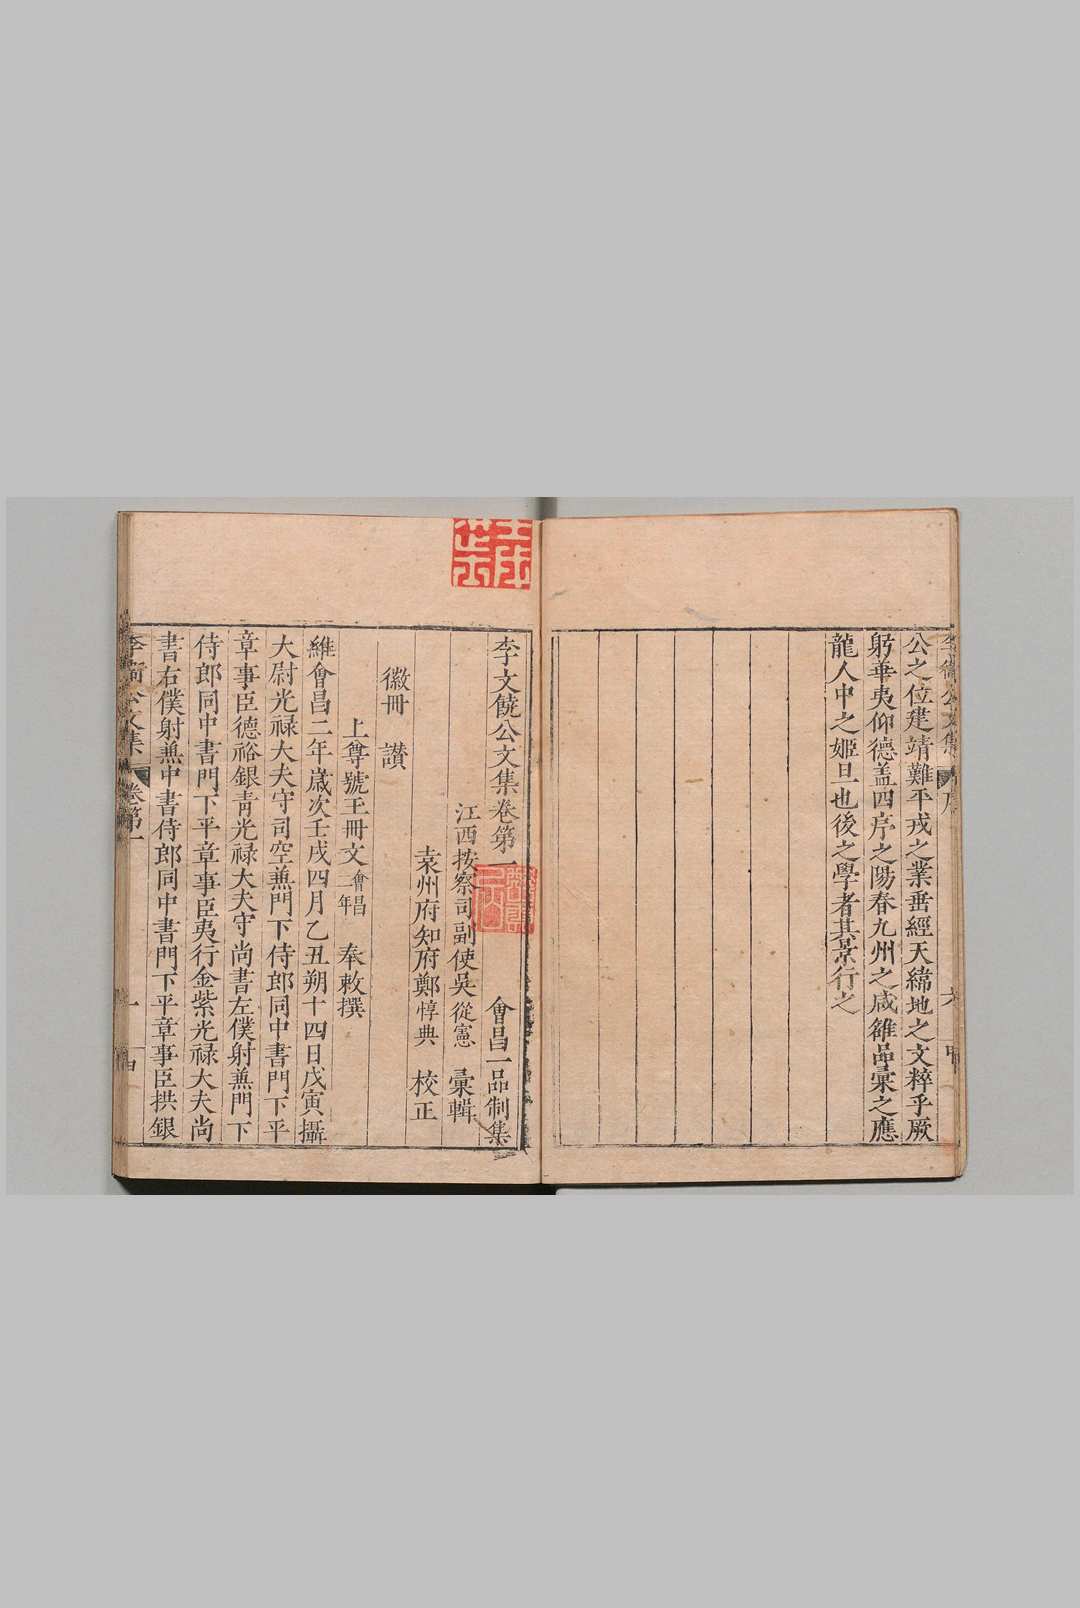 公之位建靖難平戎之業垂經天緯地之文粹乎厥
躬華夷仰德盖四序之陽春九州之咸雒品彙之應
龍人中之姬旦也後之學者其景行之
李文饒公文集卷第一 會昌一品制集
江西按察司副使吳從憲 彙輯
袁州府知府鄭惇典 校正
徽冊 讃
上尊號玉冊文會昌二年 奉敕撰
維會昌二年嵗次壬戌四月乙丑朔十四日戊寅攝
大尉光禄大夫守司空兼門下侍郎同中書門下平
章事臣德裕銀青光禄大夫守尚書左僕射兼門下
侍郎同中書門下平章事臣夷行金紫光禄大夫尚
書右僕射兼中書侍郎同中書門下平章事臣珙銀
李衛公文集 卷第一 一